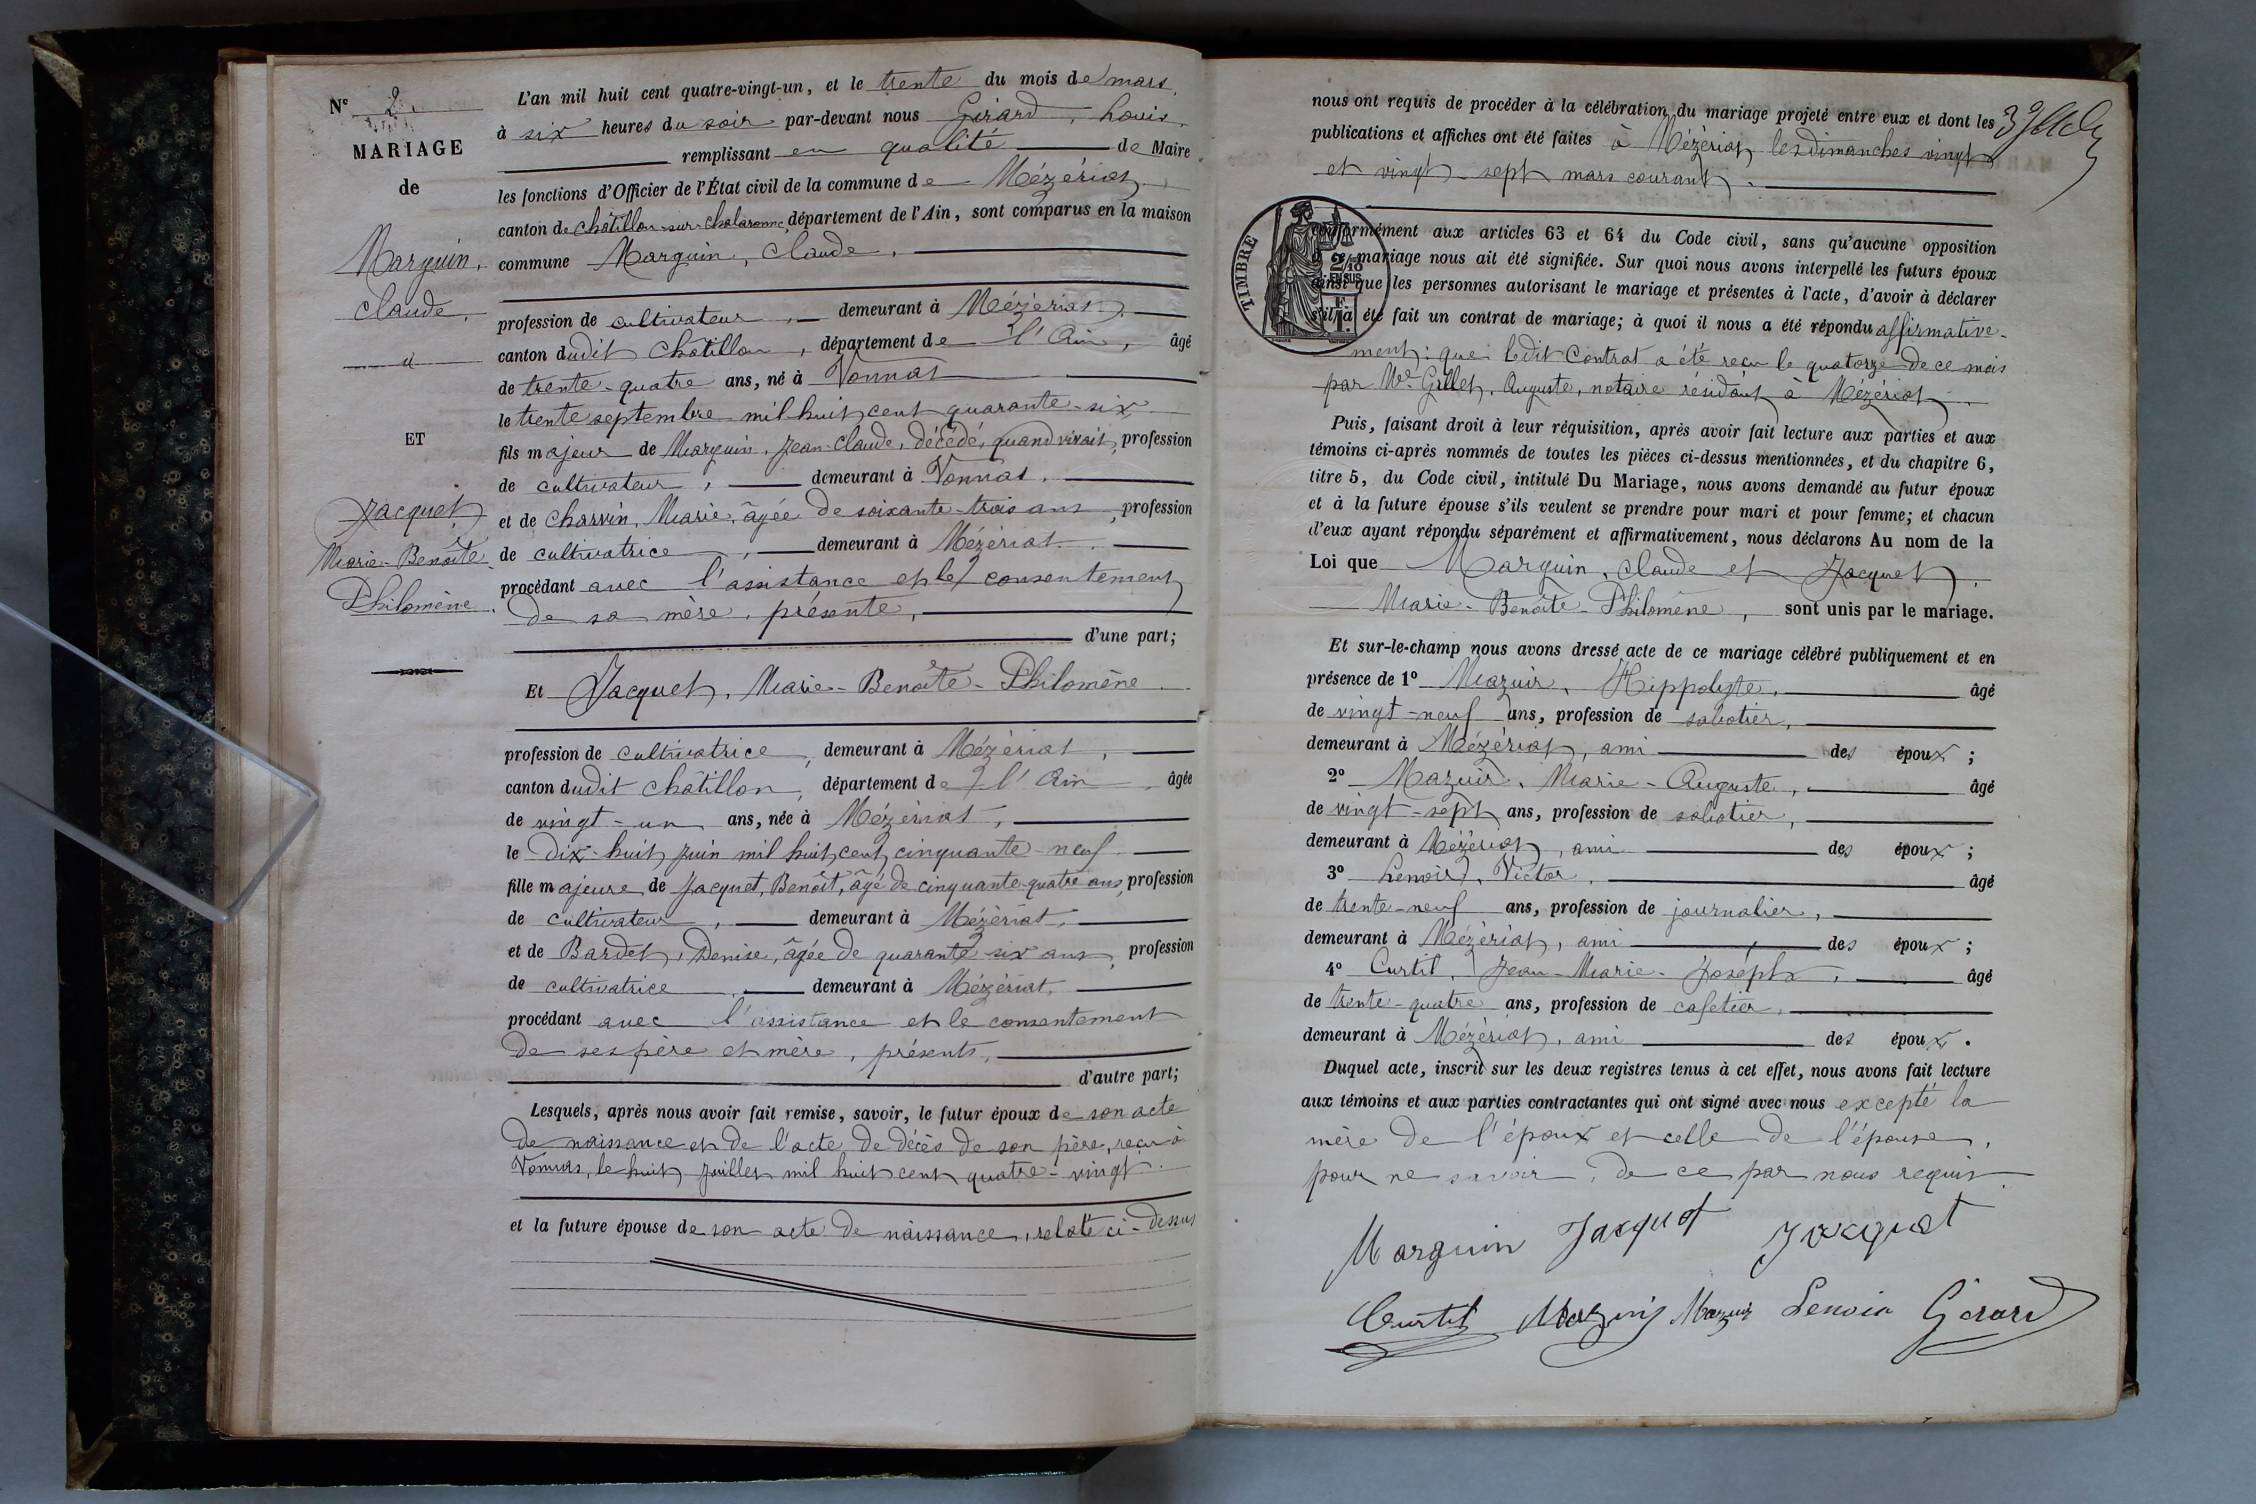 N° 2.
MARIAGE
de
Marguin,
Claude,
et
ET
Jacquet
Marie-Benoîte
Philomène.
L'an mil huit cent quatre-vingt-un, et le trente du mois de mars
à six heures du soir par-devant nous Girard, Louis,
remplissant en qualité de Maire
les fonctions d'Officier de l'État civil de la commune de Mézériat,
canton de Châtillon-sur-Chalaronne, département de l'Ain, sont comparus en la maison
commune Marguin, Claude,
profession de cultivateur, demeurant à Mézériat,
canton dudit Châtillon, département de l'Ain, âgé
de trente-quatre ans, né à Vonnas
le trente septembre mil huit cent quarante-six
fils majeur de Marguin, Jean-Claude, décédé, quand vivait, profession
de cultivateur, demeurant à Vonnas,
et de Charvin, Marie, âgée de soixante-trois ans, profession
de cultivatrice, demeurant à Mézériat,
procédant avec l'assistance et le consentement
de sa mère, présente,
d'une part;
Et Jacquet, Marie-Benoîte-Philomène
profession de cultivatrice, demeurant à Mézériat,
canton dudit Châtillon, département de l'Ain, âgée
de vingt-un ans, née à Mézériat,
le dix-huit juin mil huit cent cinquante-neuf
fille majeure de Jacquet, Benoît, âgé de cinquante-quatre ans, profession
de cultivateur, demeurant à Mézériat,
et de Bardet, Denise, âgée de quarante-six ans, profession
de cultivatrice, demeurant à Mézériat,
procédant avec l'assistance et le consentement
de ses père et mère, présents,
d'autre part;
Lesquels, après nous avoir fait remise, savoir, le futur époux de son acte
de naissance et de l'acte de décès de son père, reçu à
Vonnas, le huit juillet mil huit cent quatre-vingt.
et la future épouse de son acte de naissance, relaté ci-dessus
nous ont requis de procéder à la célébration du mariage projeté entre eux et dont les
publications et affiches ont été faites à Mézériat, les dimanches vingt
et vingt-sept mars courant.
TIMBRE
2/10
EN SUS
conformément aux articles 63 et 64 du Code civil, sans qu'aucune opposition
à ce mariage nous ait été signifiée. Sur quoi nous avons interpellé les futurs époux
ainsi que les personnes autorisant le mariage et présentes à l'acte, d'avoir à déclarer
s'il a été fait un contrat de mariage; à quoi il nous a été répondu affirmative-
ment: que ledit Contrat a été reçu le quatorze de ce mois
par Me Gillet, Auguste, notaire résidant à Mézériat.
Puis, faisant droit à leur réquisition, après avoir fait lecture aux parties et aux
témoins ci-après nommés de toutes les pièces ci-dessus mentionnées, et du chapitre 6,
titre 5, du Code civil, intitulé Du Mariage, nous avons demandé au futur époux
et à la future épouse s'ils veulent se prendre pour mari et pour femme; et chacun
d'eux ayant répondu séparément et affirmativement, nous déclarons Au nom de la
Loi que Marguin, Claude et Jacquet,
Marie-Benoîte-Philomène, sont unis par le mariage.
Et sur-le-champ nous avons dressé acte de ce mariage célébré publiquement et en
présence de 1° Mazuir, Hippolyte, âgé
de vingt-neuf ans, profession de sabotier,
demeurant à Mézériat, ami des époux;
2° Mazuir, Marie-Auguste, âgé
de vingt-sept ans, profession de sabotier,
demeurant à Mézériat, ami des époux;
3° Lenoir, Victor, âgé
de trente-neuf ans, profession de journalier,
demeurant à Mézériat, ami des époux;
4° Curtil, Jean-Marie-Joseph, âgé
de trente-quatre ans, profession de cafetier,
demeurant à Mézériat, ami des époux.
Duquel acte, inscrit sur les deux registres tenus à cet effet, nous avons fait lecture
aux témoins et aux parties contractantes qui ont signé avec nous excepté la
mère de l'époux et celle de l'épouse,
pour ne savoir, de ce par nous requis.
Marguin Jacquet Jacquet
Curtil Mazuir Mazuir Lenoir Girard